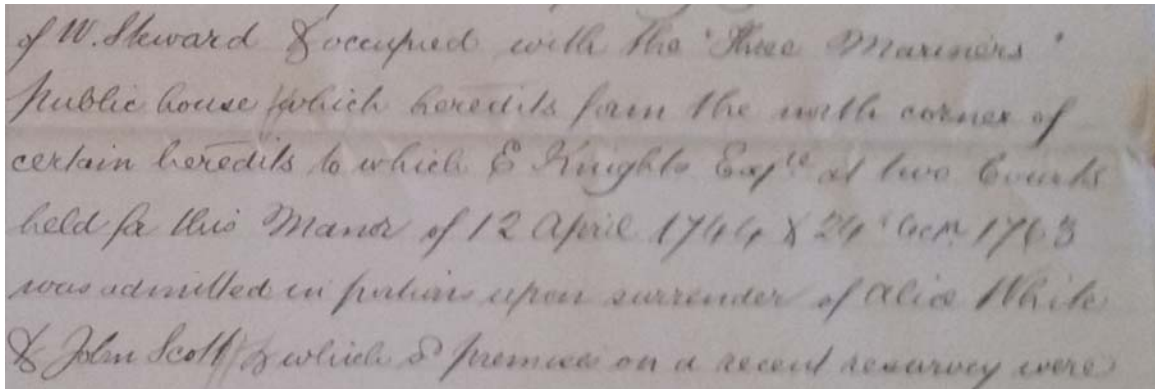 of W. Steward & occupied with the "Three Mariners"
public house which heredits form the north corner of
certain heredits to which E Knights at two Courts
held for this Manor of 12 April 1744 & 24 Octr 1763
was admitted in portions upon surrender of Alice White
& John Scott & which sd premises on a recent resurvey were